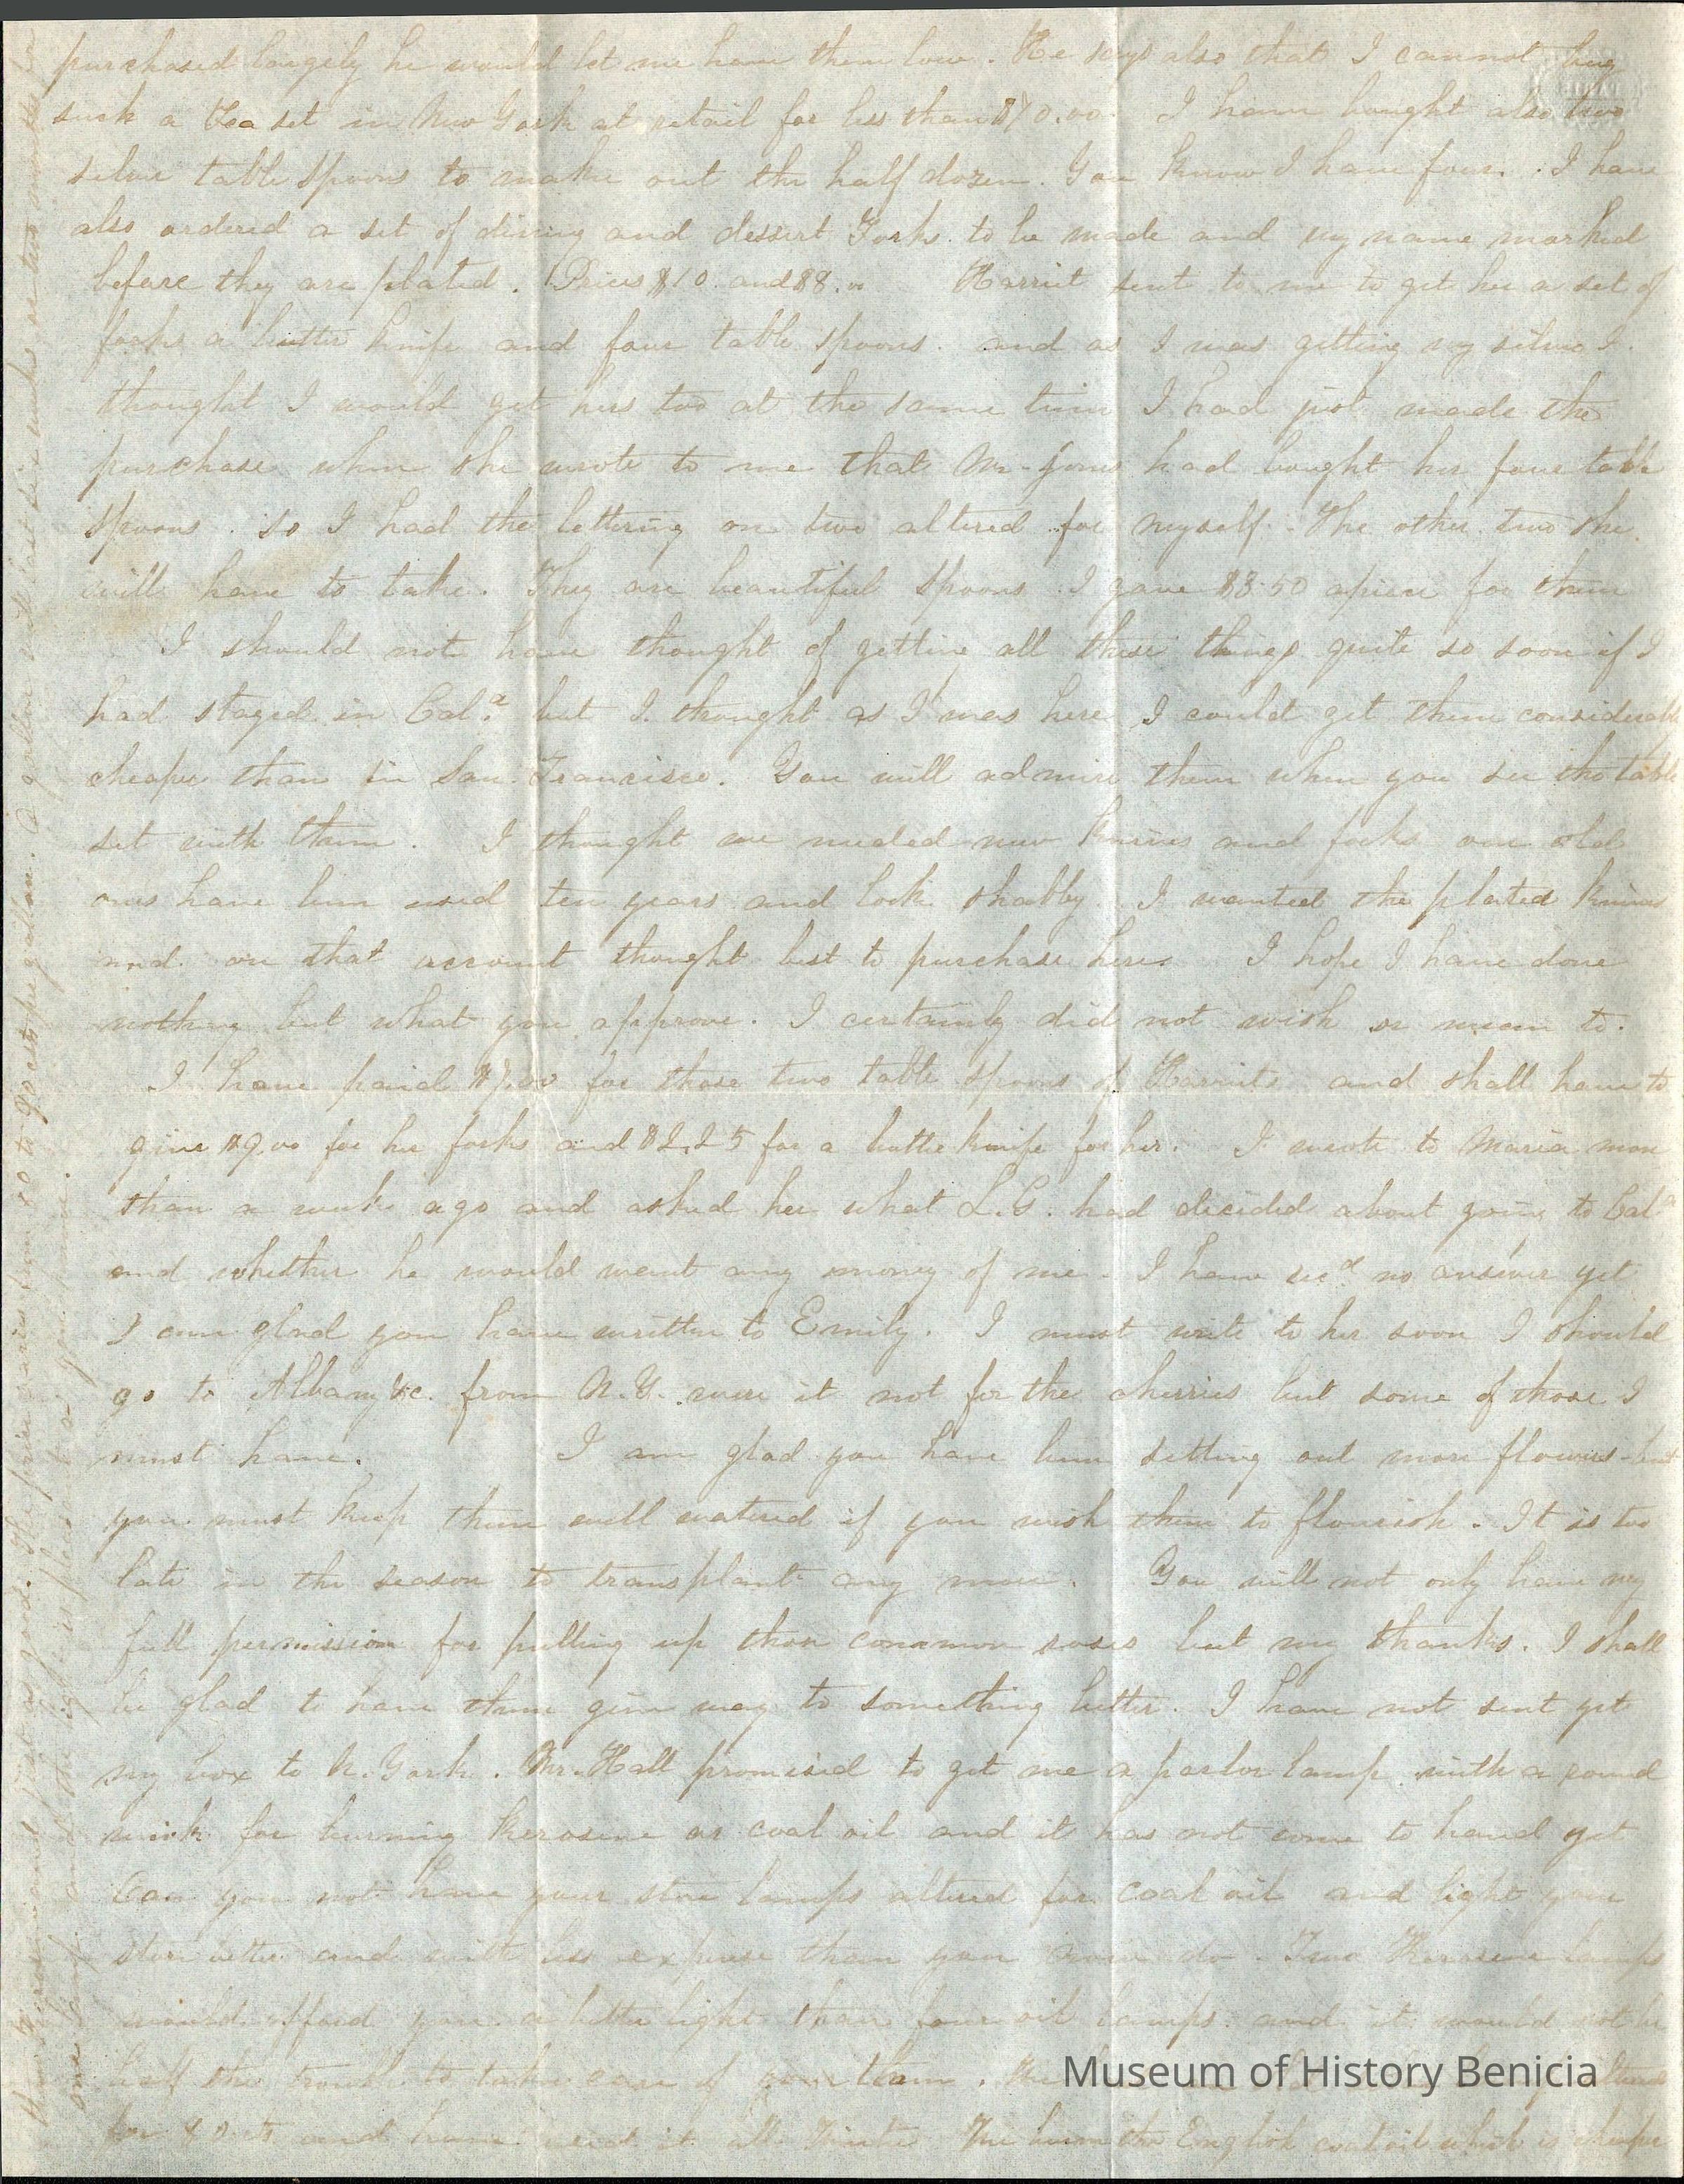 purchased largely he would let me have them low. He says also that I cannot buy
such a Tea set in New York at retail for less than $70.00. I have bought also two
silver table spoons to make out the half dozen. You know I have four. I have
also ordered a set of dining and dessert Forks to be made and my name marked
before they are plated. Prices $10. and $8.00 Harriet sent to me to get her a set of
forks a butter knife and four table spoons. and as I was getting my silver I
thought I would get hers too at the same time I had just made the
purchase when she wrote to me that Mr. Jones had bought her four table
spoons. so I had the lettering on two altered for myself. The other two she
will have to take. They are beautiful spoons I gave $3.50 apiece for them
I should not have thought of getting all these things quite so soon if I
had stayed in Cala. but I thought as I was here I could get them considerable
cheaper than in San Francisco. You will admire them when you see the table
set with them. I thought we needed new knives and forks our old
ones have been used ten years and look shabby. I wanted the plated knives
and on that account thought best to purchase here. I hope I have done
nothing but what you approve. I certainly did not wish or mean to.
I have paid $7.00 for those two table spoons of Harriets and shall have to
give $9.00 for her forks and $2.25 for a butter knife for her. I wrote to Maria more
than a week ago and asked her what L.G. had decided about going to Cala
and whether he would want any money of me. I have recd no answer yet
I am glad you have written to Emily. I must write to her soon I should
go to Albany &c. from N.Y. were it not for the cherries but some of those I
must have. I am glad you have been setting out more flowers - but
you must keep them well watered if you wish them to flourish. It is too
late in the season to transplant any more. You will not only have my
full permission for pulling up those common roses but my thanks. I shall
be glad to have them give way to something better. I have not sent yet
my box to N. York. Mr. Hall promised to get me a parlor lamp with a round
wick for burning kerosene or coal oil and it has not come to hand yet
Can you not have your store lamps altered for coal oil and light your
store better and with less expense than you now do. Two Kerosene lamps
would afford you a better light than four oil lamps. and it would not be
half the trouble to take care of them.
for cts and have used it all Winter We burn the English coal oil which is cheaper
than Kerosene and just as good. The price varies from 80 to 90 cts per gallon. A gallon will last six weeks or two months in
one lamp and the light is
Museum of History Benicia